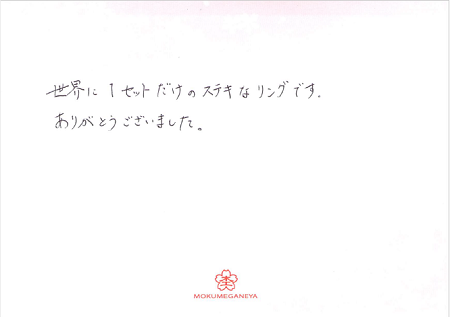 世界に1セットだけのステキなリングです.
ありがとうございました。
MOKUMEGANEYA